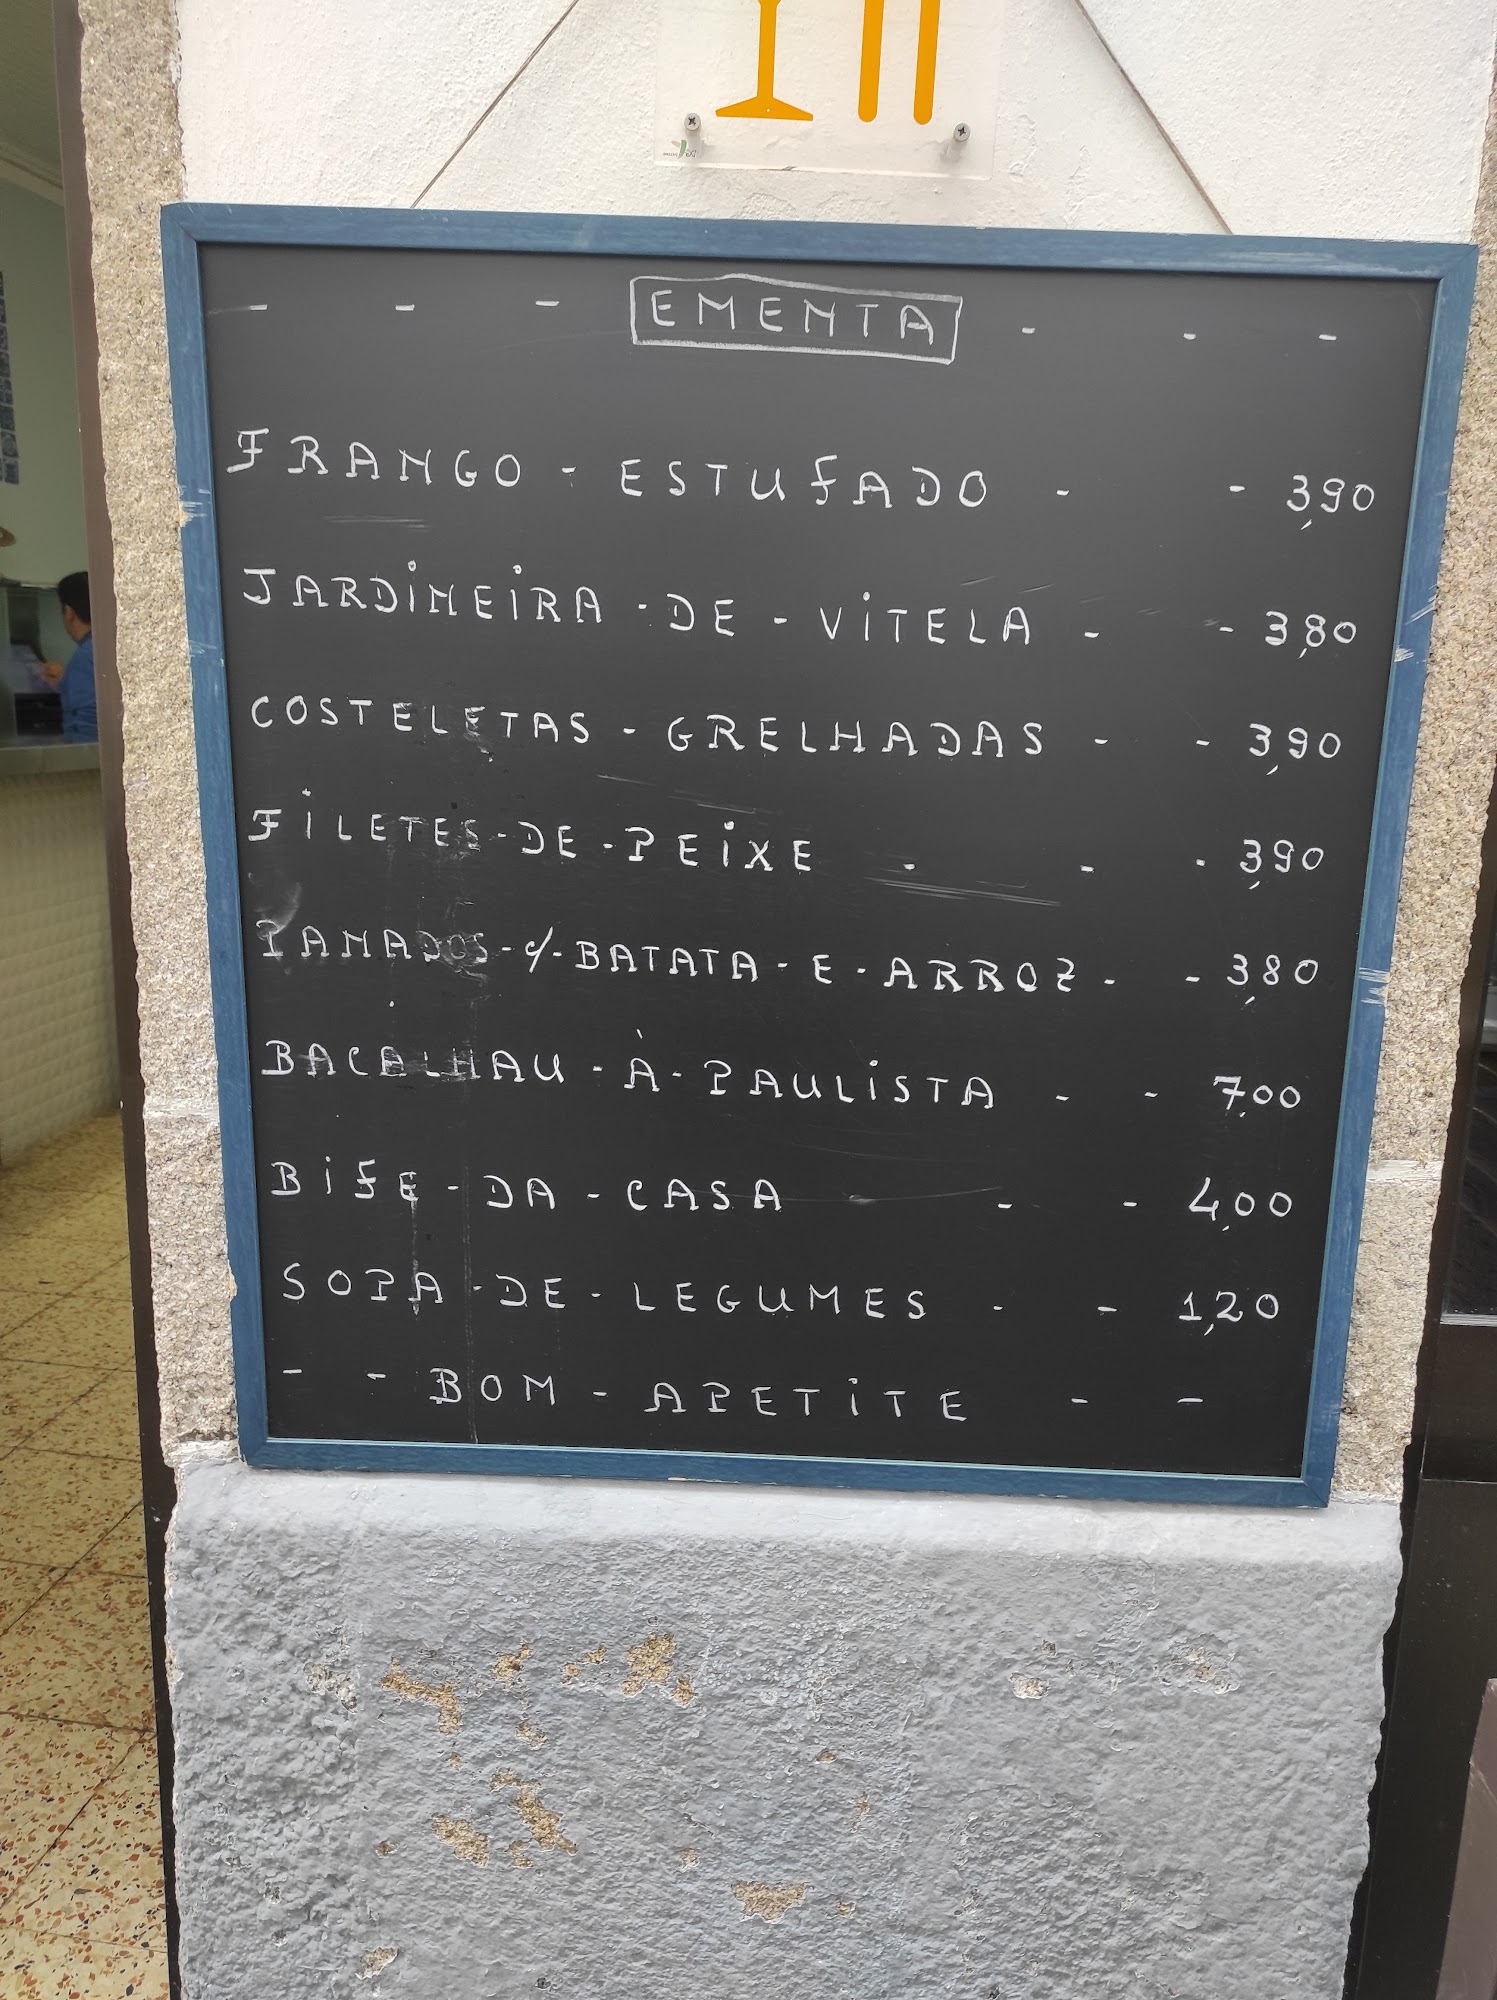 - - - EMENTA - - -
FRANGO - ESTUFADO - - 3,90
JARDiNEiRA - DE - ViTELA - - 3,80
COSTELETAS - GRELHADAS - - 3,90
FiLETES - DE - PEiXE - - - 3,90
PANADOS - c/ - BATATA - E - ARROZ - - 3,80
BACALHAU - À - PAULiSTA - - 7,00
BiFE - DA - CASA - - - 4,00
SOPA - DE - LEGUMES - - 1,20
- - BOM - APETiTE - -